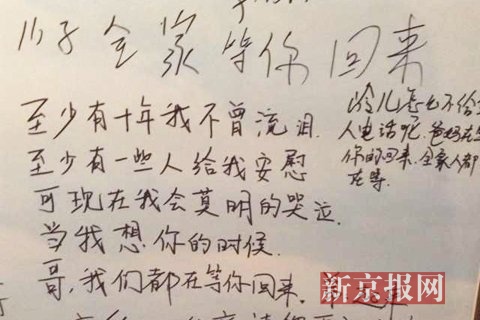 全家等你回来
至少有十年我不曾流泪.
至少有一些人给我安慰
可现在我会莫明的哭泣.
当我想你的时候.
哥,我们都在等你回来.
怎也不给
人电话呢.爸妈在
你的回来.全家人都
在等.
新京报网